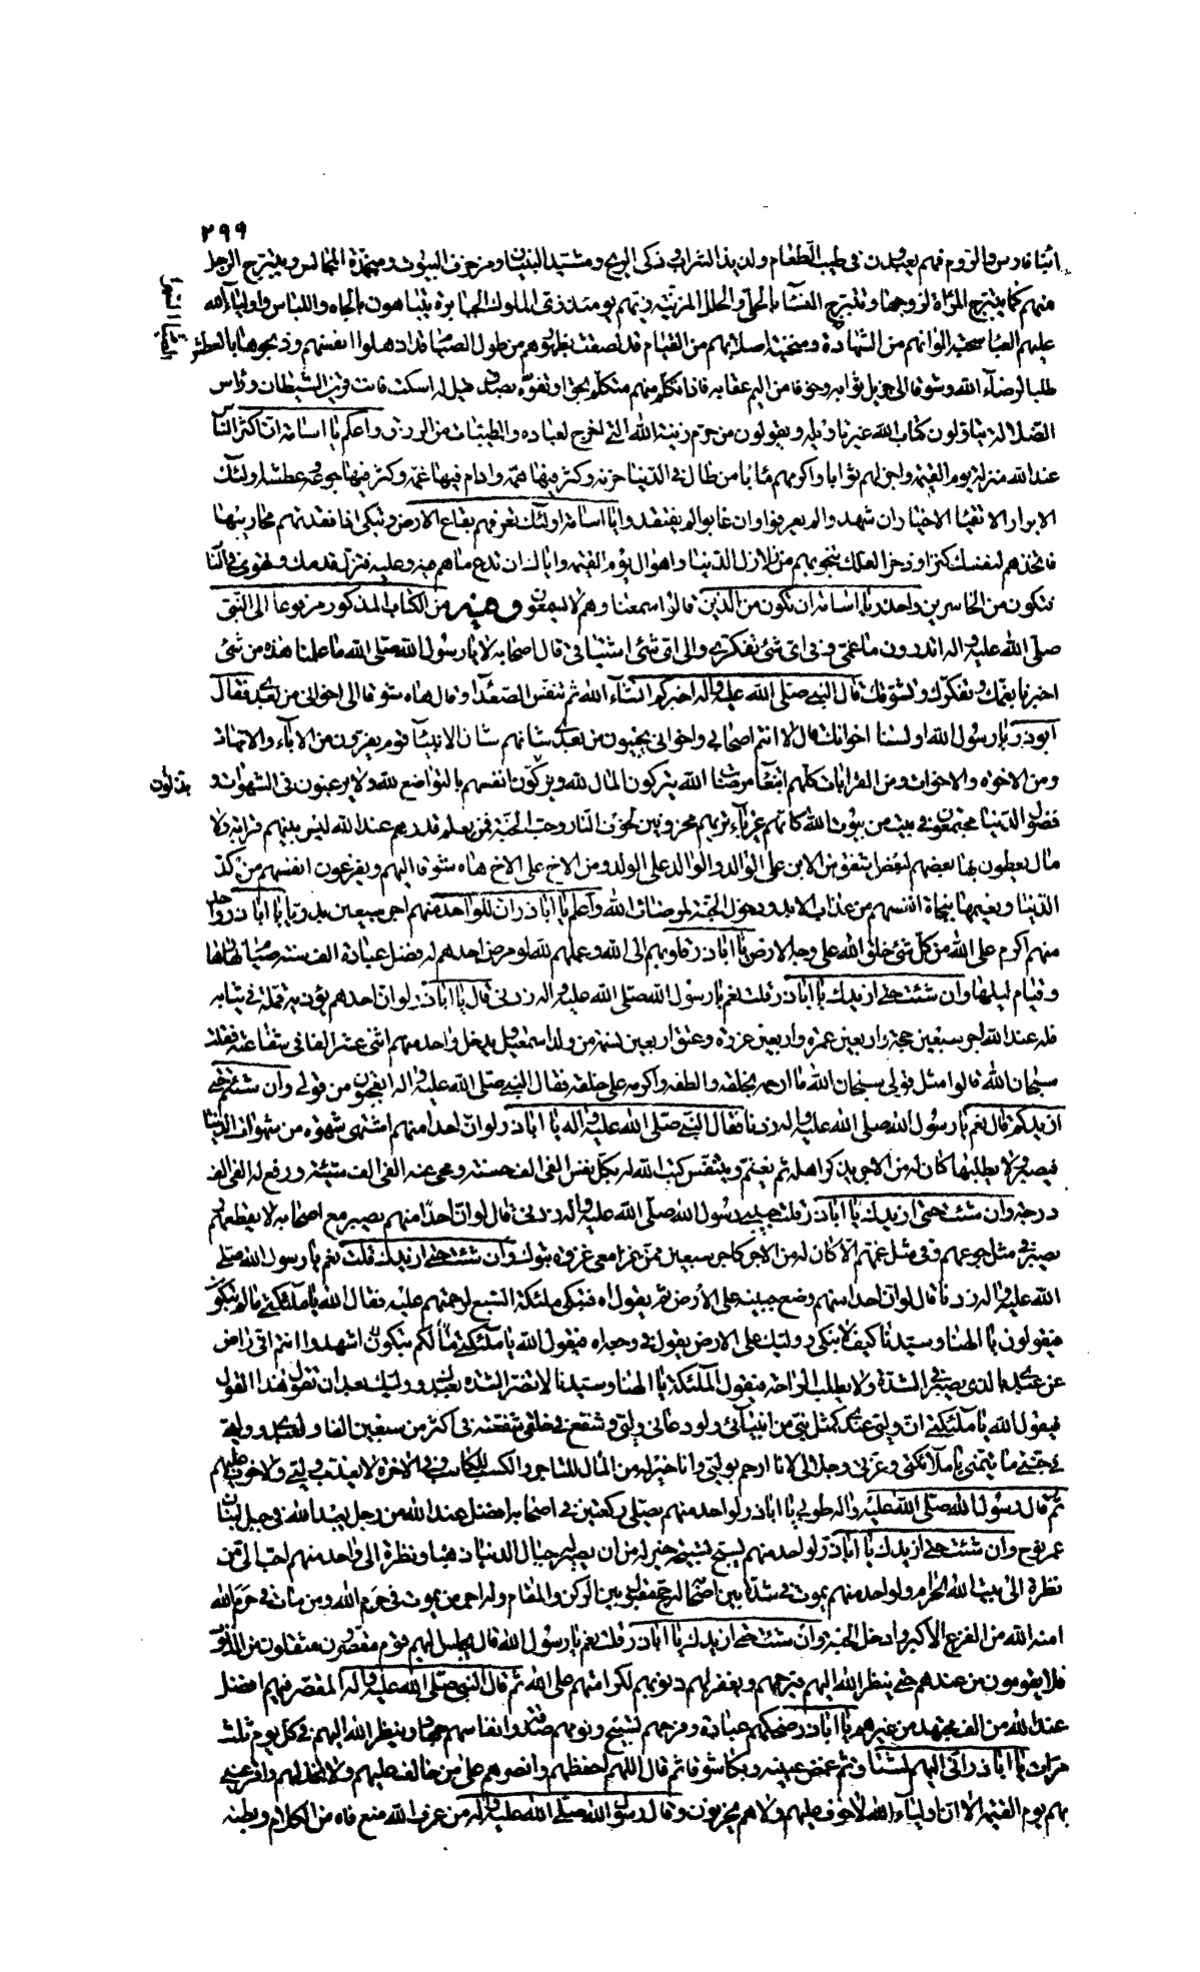 ٢٩٩
ابناء فارس والروم فهم يعبدون فى طيب الطعام ولذيذ الشراب وذكى الريح ومشيد البنيان ومزخرف البيوت ومنجدة المجالس ويتبرج الرجل
منهم كما يتبرج المراة لزوجها وتتبرج النساء بالحلى والحلل المزينة زيهم يومئذ زى الملوك الجبابرة يتباهون بالجاه واللباس واولياء الله
عليهم العباء شحبة الوانهم من السهادة ومنحنية اصلابهم من القيام قد لصقت بطونهم بظهورهم من طول الصيام قد اذهلوا انفسهم وذبحوها بالعطش
طلبا لرضاء الله وشوقا الى جزيل ثوابه وخوفا من اليم عقابه فاذا تكلم منهم متكلم بحق او تفوه بصدق قيل له اسكت فانت قرين الشيطان وراس
الضلالة يتاولون كتاب الله على غير تاويله ويقولون من حرم زينة الله التى اخرج لعباده والطيبات من الرزق واعلم يا اسامة ان اكثر الناس
عند الله منزلة يوم القيمة واجزلهم ثوابا واكرمهم مئابا من طال فى الدنيا حزنه وكثر فيها همه ودام فيها غمه وكثر فيها جوعه وعطشه اولئك
الابرار الاتقياء الاخيار ان شهدوا لم يعرفوا وان غابوا لم يفتقدوا يا اسامة اولئك تعرفهم بقاع الارض وتبكى اذا فقدتهم محاريبها
فاتخذهم لنفسك كنزا وذخرا لعلك تنجو بهم من زلازل الدنيا واهوال يوم القيمة واياك ان تدع ما هم فيه وعليه فتزل قدمك وتهوى فى النار
فتكون من الخاسرين واحذر يا اسامة ان تكون من الذين قالوا سمعنا وهم لا يسمعون وفيه من الكتاب المذكور مرفوعا الى النبى
صلى الله عليه واله اتدرون ما غمى وفى اى شئ تفكرى والى اى شئ اشتياقى قال اصحابه لا يا رسول الله صلى الله ما علمنا هذه من شئ
اخبرنا بغمك وتفكرك وتشوقك قال النبى صلى الله عليه واله اخبركم انشاء الله ثم تنفس الصعداء وقال هاه شوقا الى اخوانى من بعدى فقال
ابوذر يا رسول الله اولسنا اخوانك قال لا انتم اصحابى واخوانى يجيئون من بعدى شانهم شان الانبياء قوم يفرون من الاباء والامهات
ومن الاخوة والاخوات ومن القرابات كلهم ابتغاء مرضات الله يتركون المال لله ويذلون انفسهم بالتواضع لله ولا يرغبون فى الشهوات و
فضول الدنيا مجتمعون فى بيت من بيوت الله كانهم غرباء تريهم محزونين لخوف النار وحب الجنة فمن يعلم قدرهم عند الله ليس بينهم قرابة ولا
مال يعطون بها بعضهم لبعض اشفق من الابن على الوالد والوالد على الولد ومن الاخ على الاخ هاه شوقا اليهم ويفرغون انفسهم من كد
الدنيا ونعيمها بنجاة انفسهم من عذاب الابد ودخول الجنة لمرضاة الله واعلم يا اباذر ان للواحد منهم اجر سبعين بدريا يا اباذر واحد
منهم اكرم على الله من كل شئ خلق الله على وجه الارض يا اباذر قلوبهم الى الله وعملهم لله لو مرض احدهم له فضل عبادة الف سنة صيام نهارها
وقيام ليلها وان شئت حتى ازيدك يا اباذر قلت نعم يا رسول الله صلى الله عليه واله زدنى قال يا اباذر لو ان احدهم يؤذيه قملة فى ثيابه
فله عند الله اجر سبعين حجة واربعين عمرة واربعين غزوة وعتق اربعين نسمة من ولد اسمعيل يدخل واحد منهم اثنى عشر الفا فى شفاعته فقلت
سبحان الله قالوا مثل قولى سبحان الله ما ارحمه بخلقه والطفه واكرمه على خلقه فقال النبى صلى الله عليه واله اتعجبون من قولى وان شئتم حتى
ازيدكم قال نعم يا رسول الله صلى الله عليه واله زدنا فقال النبى صلى الله عليه واله يا اباذر لو ان احدا منهم اشتهى شهوة من شهوات الدنيا
فيصبر ولا يطلبها كان له من الاجر بذكر اهله ثم يغتم ويتنفس كتب الله له بكل نفس الفى الف حسنة ومحى عنه الفى الف سيئة ورفع له الفى الف
درجة وان شئت حتى ازيدك يا اباذر قلت حبيبى رسول الله صلى الله عليه واله زدنى قال لو ان احدا منهم يصبر مع اصحابه لا يقطعهم
يصبر فى مثل جوعهم وفى مثل غمهم الا كان له من الاجر كاجر سبعين ممن غزا معى غزوة تبوك وان شئت حتى ازيدك قلت نعم يا رسول الله صلى
الله عليه واله زدنا قال لو ان احدا منهم وضع جبينه على الارض ثم يقول اه فتبكى ملئكة السبع لرحمتهم عليه فقال الله يا ملئكتى مالكم تبكون
فيقولون يا الهنا وسيدنا كيف لا نبكى ووليك على الارض يقول فى وجعه اه فيقول الله يا ملئكتى مالكم تبكون اشهدوا انتم انى راض
عن عبدى بالذى يصبر فى الشدة ولا يطلب الراحة فيقول الملئكة يا الهنا وسيدنا لا تضر الشدة بعبدك ووليك بعد ان تقول هذا القول
فيقول الله يا ملئكتى ان وليى عندى كمثل نبى من انبيائى ولو دعانى وليى وشفع فى خلقى شفعته فى اكثر من سبعين الفا ولعبدى ووليى
فى جنتى ما يتمنى يا ملائكتى وعزتى وجلالى لانا ارحم بوليى وانا خير له من المال للتاجر والكسب للكاسب وفى الاخرة لا يعذب وليى ولا خوف عليهم
ثم قال رسول الله صلى الله عليه واله طوبى يا اباذر لو احد منهم يصلى ركعتين فى اصحابه افضل عند الله من رجل يعبد الله فى جبل لبنان
عمر نوح وان شئت حتى ازيدك يا اباذر لو احد منهم يسبح تسبيحة خير له من ان يصير له جبال الدنيا ذهبا ونظرة الى واحد منهم احب الى من
نظرة الى بيت الله الحرام ولو احد منهم يموت فى شدة بين اصحابه له اجر مقتول بين الركن والمقام وله اجر من يموت فى حرم الله ومن مات فى حرم الله
امنه الله من الفزع الاكبر وادخل الجنة وان شئت حتى ازيدك يا اباذر قلت نعم يا رسول الله قال يجلس اليهم قوم مقصرون مثقلون من الذنوب
فلا يقومون من عندهم حتى ينظر الله اليهم فيرحمهم ويغفر لهم ذنوبهم لكرامتهم على الله ثم قال النبى صلى الله عليه واله المقصر فيهم افضل
عند الله من الف مجتهد من غيرهم يا اباذر ضحكهم عبادة وفرحهم تسبيح ونومهم صدقة وانفاسهم جهاد وينظر الله اليهم فى كل يوم ثلث
مرات يا اباذر انى اليهم لمشتاق ثم غمض عينيه وبكا شوقا ثم قال اللهم احفظهم وانصرهم على من خالف عليهم ولا تخذلهم واقر عينى
بهم يوم القيمة الا ان اولياء الله لا خوف عليهم ولا هم يحزنون وقال رسول الله صلى الله عليه واله من عرف الله منع فاه من الكلام وبطنه